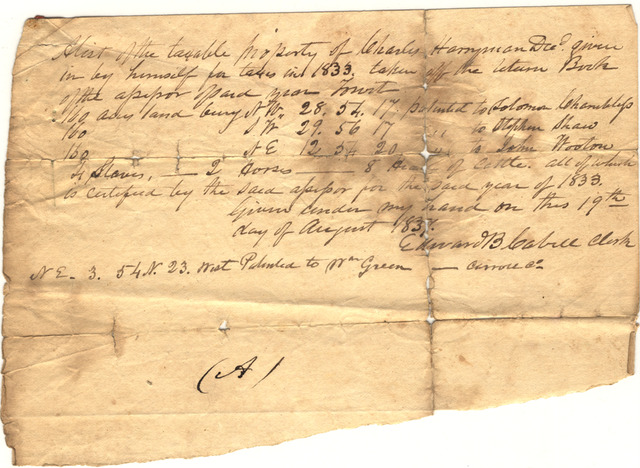 A list of the taxable property of Charles Harryman Decd. given
in by himself for taxes in 1833. taken off the return Book
of the assessor of said year To wit
160 acres land being N.W. 28. 54. 17 patented to Solomon Chambless
160 S W 29. 56 17 " " to Stephen Shaw
160 N E 12. 54 20 " " to John Wooton
Slaves, — 2 Horses — 8 Head of Cattle. all of which
is certified by the said assessor for the said year of 1833.
Given under my hand on this 19th
day of August 183
Edward B Cabell Clerk
N E - 3. 54 N. 23. West Patented to Wm Green — Carroll Co
(A)